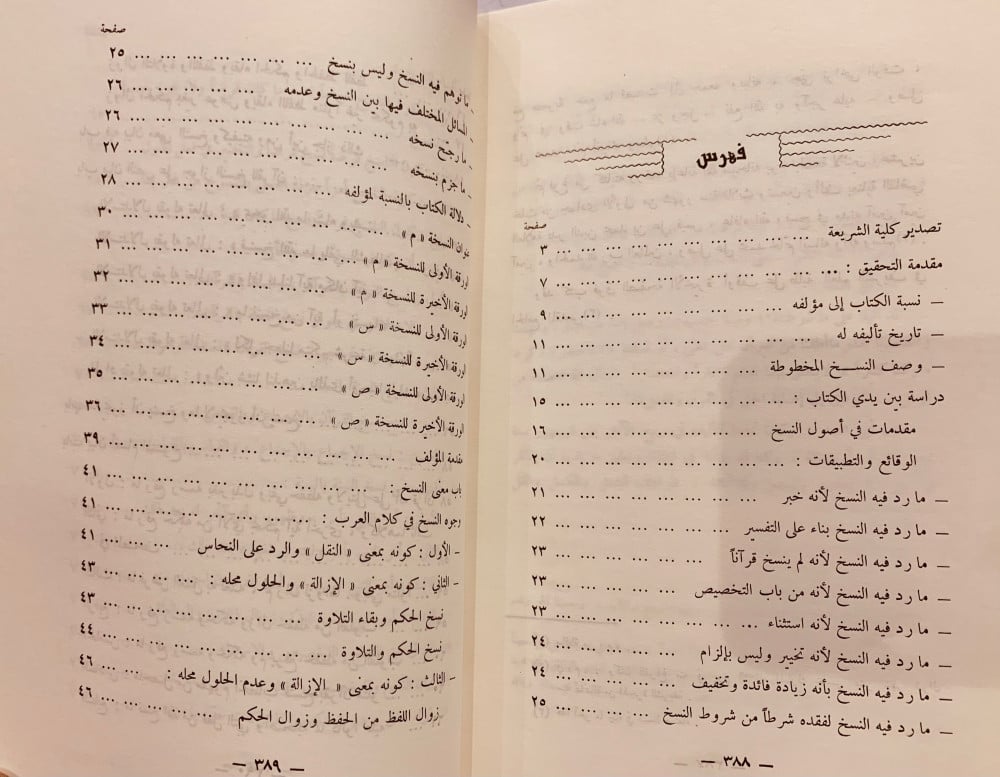 فهرس
صفحة
تصدير كلية الشريعة ... ... ... ... ... ... ... ... ... ٣
مقدمة التحقيق : ... ... ... ... ... ... ... ... ... ٧
— نسبة الكتاب إلى مؤلفه ... ... ... ... ... ... ... ٩
— تاريخ تأليفه له ... ... ... ... ... ... ... ... ١١
— وصف النســخ المخطوطة ... ... ... ... ... ... ... ١١
دراسة بين يدي الكتاب : ... ... ... ... ... ... ... ١٥
مقدمات في أصول النسخ ... ... ... ... ... ... ... ١٦
الوقائع والتطبيقات : ... ... ... ... ... ... ... ٢٠
— ما رد فيه النسخ لأنه خبر ... ... ... ... ... ... ... ٢١
— ما رد فيه النسخ بناء على التفسير ... ... ... ... ... ٢٢
— ما رد فيه النسخ لأنه لم ينسخ قرآناً ... ... ... ... ... ٢٣
— ما رد فيه النسخ لأنه من باب التخصيص ... ... ... ... ٢٣
— ما رد فيه النسخ لأنه استثناء ... ... ... ... ... ... ... ٢٣
— ما رد فيه النسخ لأنه تخيير وليس بإلزام ... ... ... ... ٢٤
— ما رد فيه النسخ بأنه زيادة فائدة وتخفيف ... ... ... ... ٢٤
— ما رد فيه النسخ لفقده شرطاً من شروط النسخ ... ... ... ٢٥
— ٣٨٨ —
صفحة
ـ ما توهم فيه النسخ وليس بنسخ ... ... ... ... ... ... ... ٢٥
المسائل المختلف فيها بين النسخ وعدمه ... ... ... ... ... ٢٦
ـ ما رجح نسخه ... ... ... ... ... ... ... ... ... ٢٦
ـ ما جزم بنسخه ... ... ... ... ... ... ... ... ... ٢٧
ـ دلالة الكتاب بالنسبة لمؤلفه ... ... ... ... ... ... ... ٢٨
عنوان النسخة « م » ... ... ... ... ... ... ... ... ٣٠
الورقة الأولى للنسخة « م » ... ... ... ... ... ... ... ٣١
الورقة الأخيرة للنسخة « م » ... ... ... ... ... ... ... ٣٢
الورقة الأولى للنسخة « س » ... ... ... ... ... ... ... ٣٣
الورقة الأخيرة للنسخة « س » ... ... ... ... ... ... ... ٣٤
الورقة الأولى للنسخة « ص » ... ... ... ... ... ... ... ٣٥
الورقة الأخيرة للنسخة « ص » ... ... ... ... ... ... ... ٣٦
مقدمة المؤلف ... ... ... ... ... ... ... ... ... ٣٩
باب معنى النسخ : ... ... ... ... ... ... ... ... ٤١
وجوه النسخ في كلام العرب : ... ... ... ... ... ... ... ٤١
ـ الأول : كونه بمعنى « النقل » والرد على النحاس ... ... ... ٤١
ـ الثاني : كونه بمعنى « الإزالة » والحلول محله : ... ... ... ... ٤٣
نسخ الحكم وبقاء التلاوة ... ... ... ... ... ... ... ٤٣
نسخ الحكم والتلاوة ... ... ... ... ... ... ... ... ٤٤
ـ الثالث : كونه بمعنى « الإزالة » وعدم الحلول محله : ... ... ٤٦
زوال اللفظ من الحفظ وزوال الحكم ... ... ... ... ... ٤٦
— ٣٨٩ —